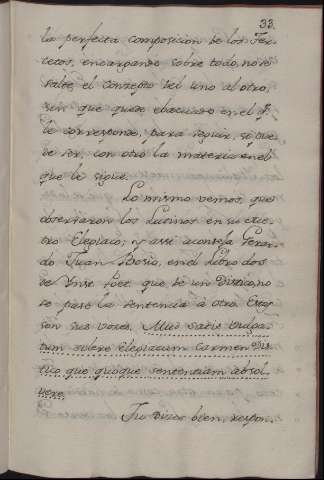 33.
la perfecta composicion de los Ter-
cetos, encargando sobre todo, no se
salte, el concepto del uno al otro,
sin que quede evacuado en el q.
le corresponde, para seguir, si pue-
de ser, con otro la materia en el
que le sigue.
Lo mismo vemos, que
observaron los Latinos en su me-
tro Elegiaco; y assi aconseja Gerar-
do Juan Bosio, en el Libro dos
de Inst. Poet. que de un Distico, no
se pase la sentencia à otro. Estas
son sus voces. Aliud satis vulga-
tum solere Elegiacum Carmen Dis-
tico que quoque sententiam absol-
vere.
Tu dizes bien, respon-